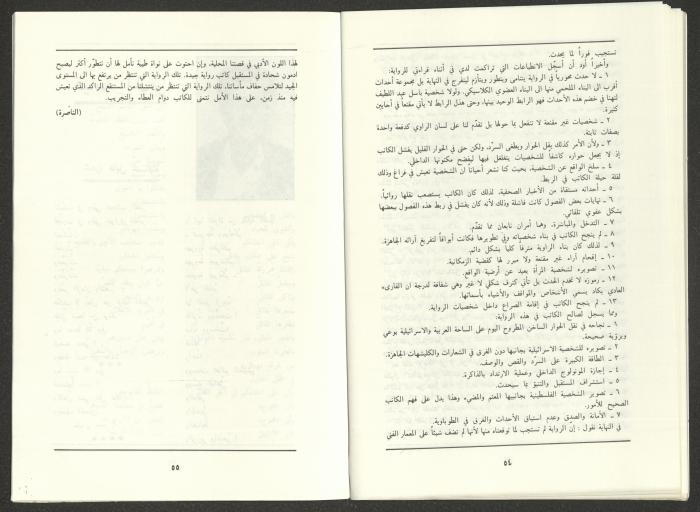 تستجيب فوراً لما يحدث.
وأخيراً أود أن أسجّل الانطباعات التي تراكمت لدي في أثناء قراءتي للرواية:
١ ـ لا حدث محورياً في الرواية يتنامى ويتطور ويتأزم لينفرج في النهاية بل مجموعة أحداث
أقرب الى البناء الملحمي منها الى البناء العضوي الكلاسيكي. ولولا شخصية باسل عبد اللطيف
لتهنا في خضم هذه الأحداث فهو الرابط الوحيد بينها، وحتى هذا الرابط لا يأتي مقنعاً في أحايين
كثيرة.
٢ ـ شخصيات غير مقنعة لا تنفعل بما حولها بل تقدّم لنا على لسان الراوي كدفعة واحدة
بصفات ثابتة.
٣ ـ ولأن الأمر كذلك يقل الحوار ويطغى السرد، ولكن حتى في الحوار القليل يفشل الكاتب
إذ لا يجعل حواره كاشفاً للشخصيات يتغلغل فيها ليفضح مكنونها الداخلي.
٤ ـ سلخ الواقع عن الشخصية، بحيث كنا نشعر أحياناً أن الشخصية تعيش في فراغ وذلك
لقلة حيلة الكاتب في الربط.
٥ ـ أحداثه مستقاة من الأخبار الصحفية، لذلك كان الكاتب يستصعب نقلها روائياً.
٦ ـ نهايات بعض الفصول كانت فاشلة وذلك لأنه كان يفشل في ربط هذه الفصول ببعضها
بشكل عفوي تلقائي.
٧ ـ التدخل والمباشرة، وهما أمران نابعان مما تقدّم.
٨ ـ لم ينجح الكاتب في بناء شخصياته وفي تطويرها فكانت أبواقاً لتفريغ آرائه الجاهزة.
٩ ـ لذلك كان بناء الراوية مترفاً كلياً بشكل دائم.
١٠ ـ إقحام آراء غير مقنعة ولا مبرر لها كقضية الزمكانية.
١١ ـ تصويره لشخصية المرأة بعيد عن أرضية الواقع.
١٢ ـ رموزه لا تخدم الحدث بل تأتي كترف شكلي لا غير وهي شفافة لدرجة ان القارىء
العادي يكاد يسمي الأشخاص والمواقف والأشياء بأسمائها.
١٣ ـ لم ينجح الكاتب في إقامة الصراع داخل شخصيات الرواية.
ومما يسجل لصالح الكاتب في هذه الرواية:
١ ـ نجاحه في نقل الحوار الساخن المطروح اليوم على الساحة العربية والاسرائيلية بوعي
وبرؤية صحيحة.
٢ ـ تصويره للشخصية الاسرائيلية بجانبيها دون الغرق في الشعارات والكليشهات الجاهزة.
٣ ـ الطاقة الكبيرة على السرد والقص والوصف.
٤ ـ إجازة المونولوج الداخلي وعملية الارتداد بالذاكرة.
٥ ـ استشراف المستقبل والتنبؤ بما سيحدث.
٦ ـ تصوير الشخصية الفلسطينية بجانبيها المعتم والمضيء وهذا يدل على فهم الكاتب
الصحيح للأمور.
٧ ـ الأمانة والصدق وعدم استباق الأحداث والغرق في الطوباوية.
في النهاية نقول : إن الرواية لم تستجب لما توقعناه منها لأنها لم تضف شيئاً على المعمار الفني
٥٤
لهذا اللون الأدبي في قصتنا المحلية، وإن احتوت على نواة طيبة نأمل لها أن تتطوّر أكثر ليصبح
ادمون شحادة في المستقبل كاتب رواية جيدة. تلك الرواية التي ننتظر من يرتفع بها الى المستوى
الجيد لتلامس حفاف مأساتنا، تلك الرواية التي ننتظر من ينتشلنا من المستنقع الراكد الذي نعيش
فيه منذ زمن، على هذا الأمل نتمنى للكاتب دوام العطاء والتجريب.
(الناصرة)
٥٥